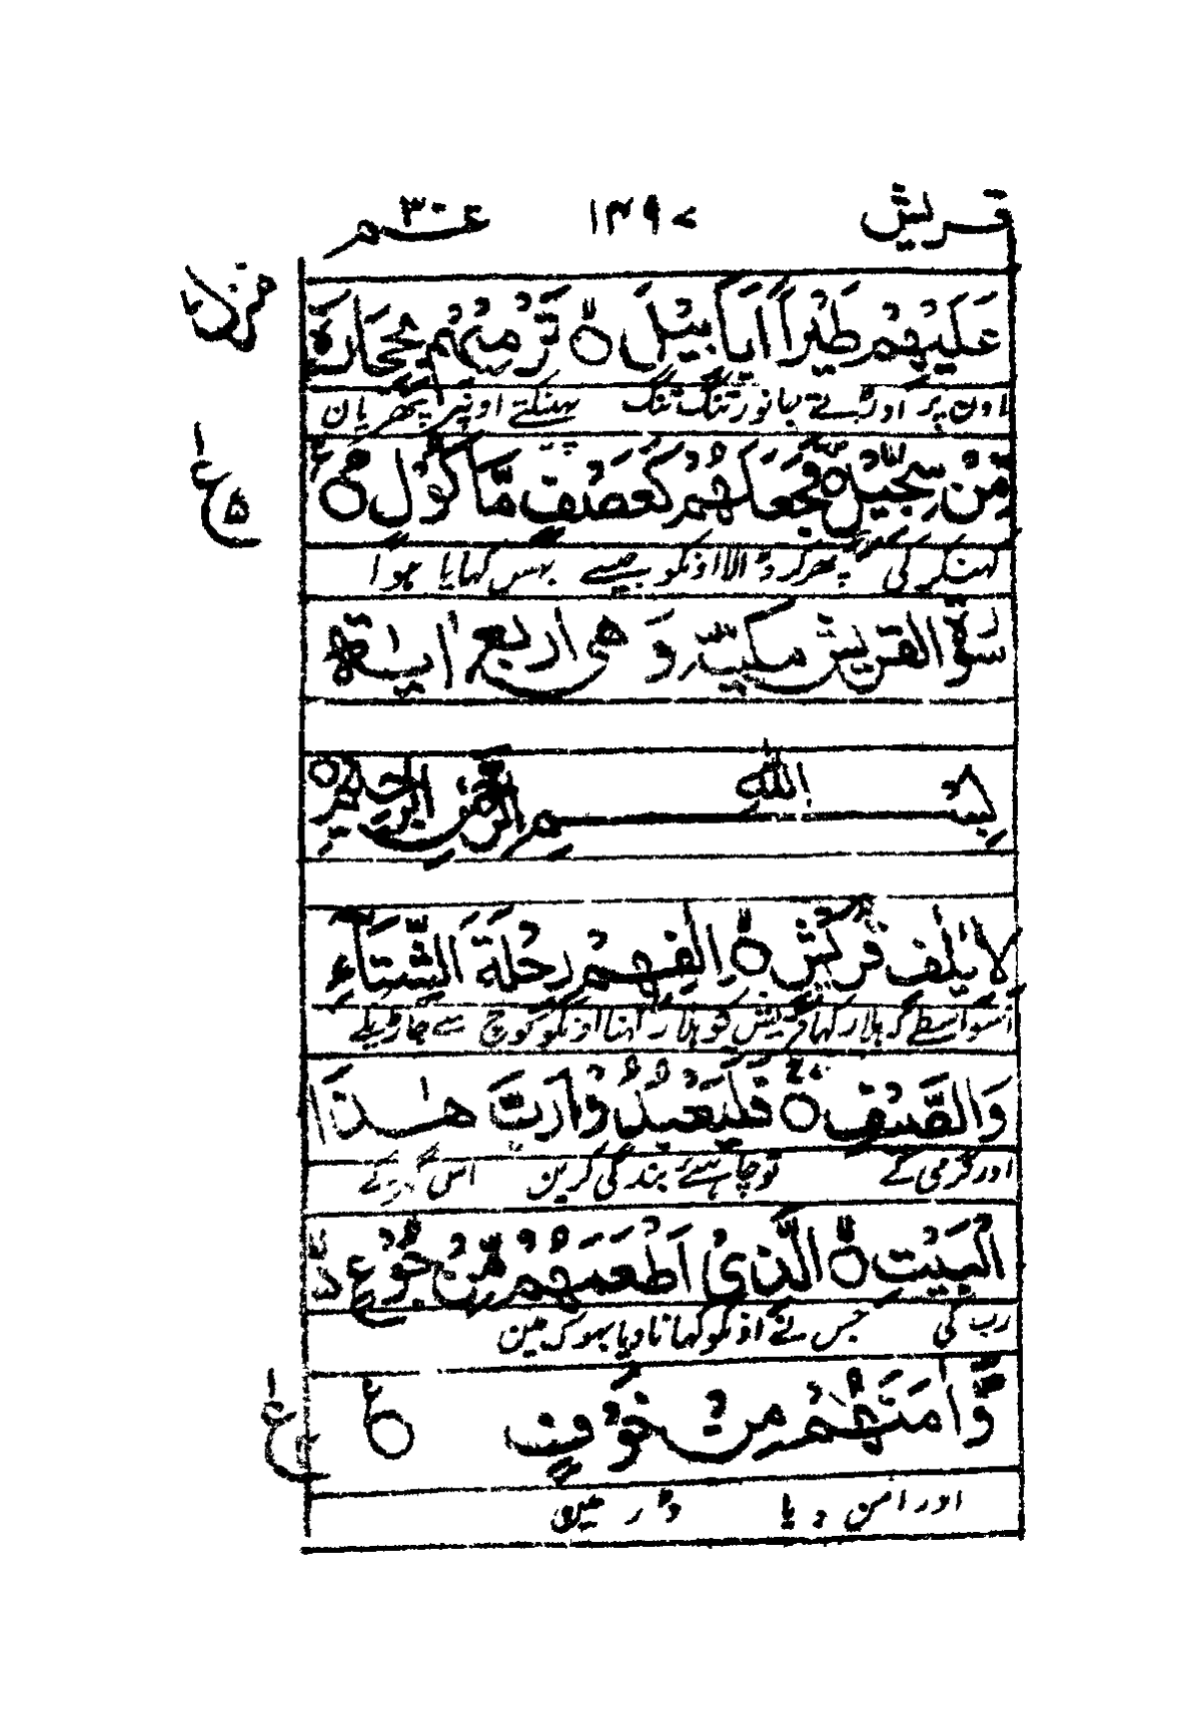 قریش ۱۴۹۷ عم ۳۰
منزل ۷
عَلَيْهِمْ طَيْرًا اَبَابِيْلَ ۙ تَرْمِيْهِمْ بِحِجَارَةٍ
اون پر اوڑتے جانور تنگ تنگ پھینکتے اونپر پتھریان
مِّنْ سِجِّيْلٍ ۙ فَجَعَلَهُمْ كَعَصْفٍ مَّاْكُوْلٍ ۠
کھنکر کی پھر کر ڈالا اونکو جیسے بھس کھایا ہوا
سورة القريش مكية وهى اربع ايات
بسم الله الرحمن الرحيم
لِاِيْلٰفِ قُرَيْشٍ ۙ اٖلٰفِهِمْ رِحْلَةَ الشِّتَآءِ
اسواسطے کہ ہلا رکھا قریش کو ہلا رکھنا اونکو کوچ سے جاڑیکے
وَالصَّيْفِ ۚ فَلْيَعْبُدُوْا رَبَّ هٰذَا
اور گرمی کے تو چاہئے بندگی کرین اس گھر کے
الْبَيْتِ ۙ الَّذِيْٓ اَطْعَمَهُمْ مِّنْ جُوْعٍ
رب کی جس نے اونکو کھانا دیا بھوک مین
وَّاٰمَنَهُمْ مِنْ خَوْفٍ ۠
اور امن دیا ڈر مین